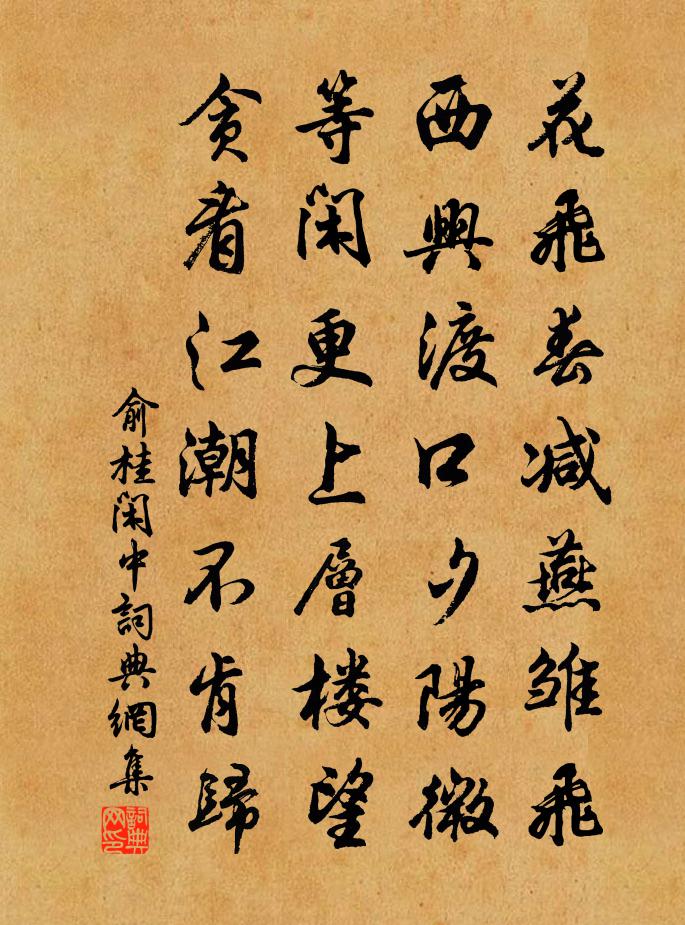 花飛春減燕雏飛
西興渡口夕陽微
等閑更上層楼望
貪看江潮不肯歸
俞桂閑中詞典網集
詞典网印